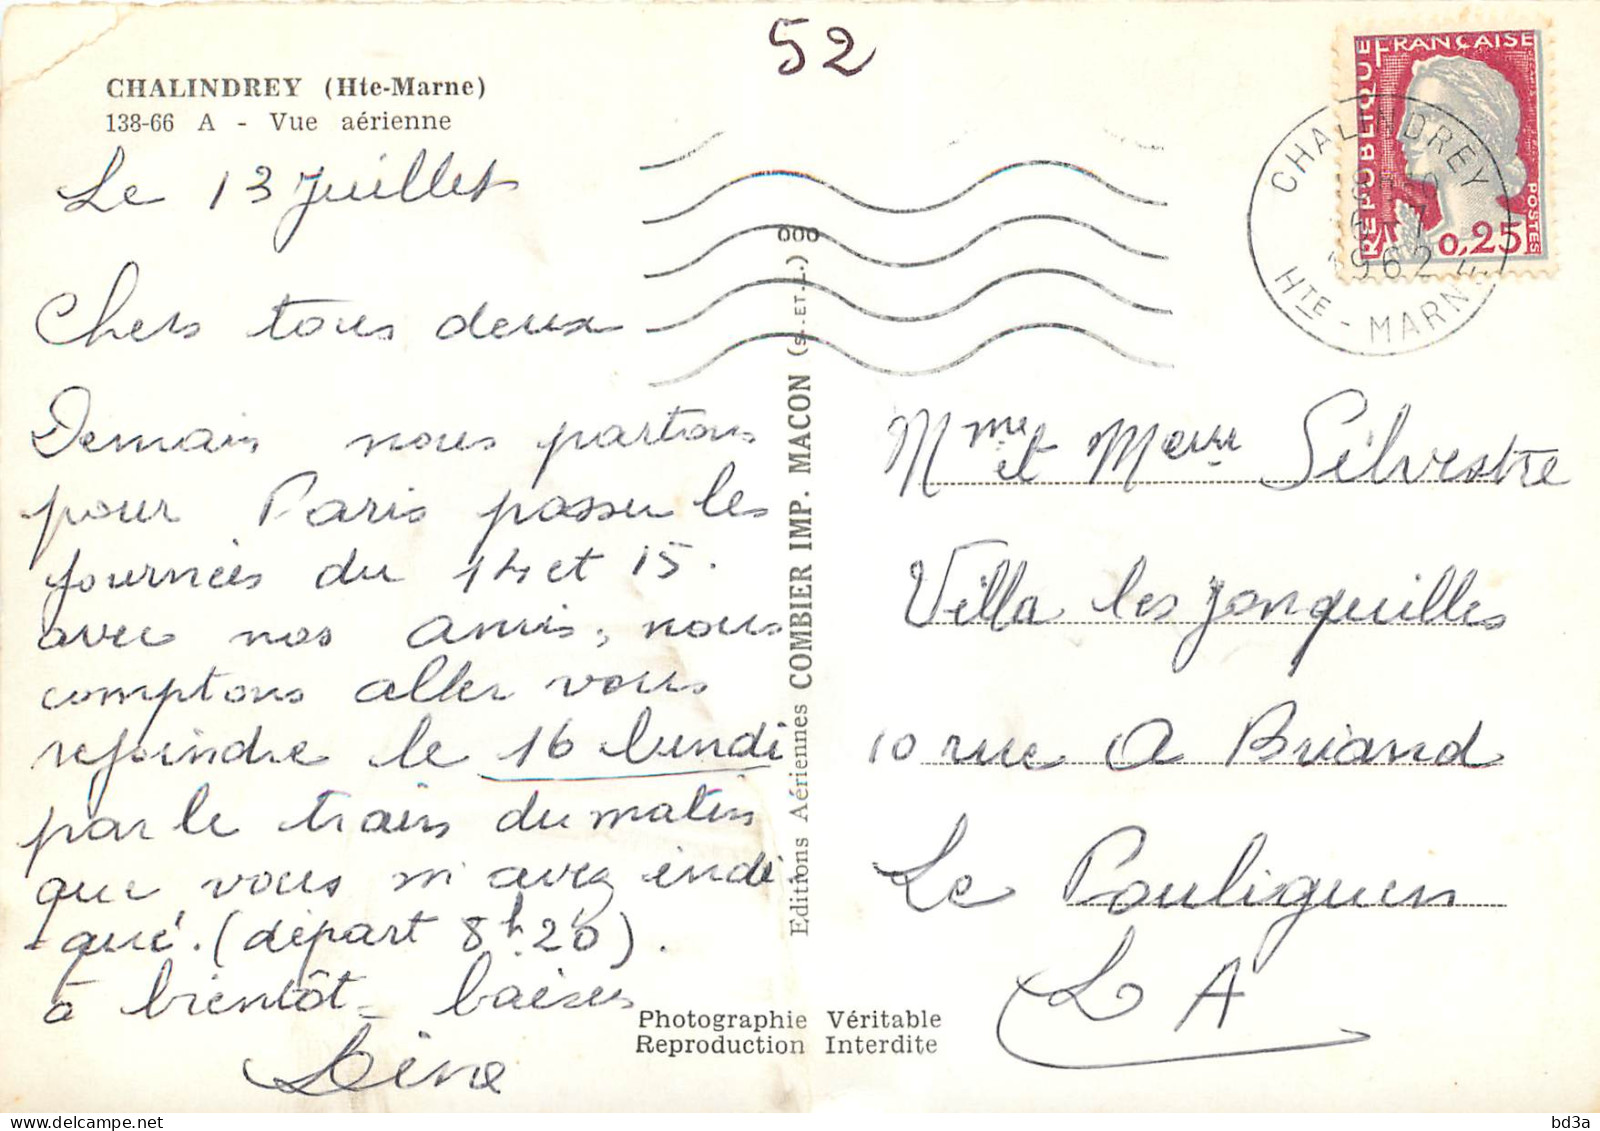 52
CHALINDREY (Hte-Marne)
138-66 A - Vue aérienne
Le 13 Juillet
Chers tous deux
Demain nous partons
pour Paris passer les
journées du 14 et 15.
avec nos amis, nous
comptons aller vous
rejoindre le 16 lundi
par le train du matin
que vous m'avez indi
-qué. (départ 8h20).
à bientôt - baisers
Line
Editions Aériennes COMBIER IMP. MACON (S.-ET-L.) 000
Photographie Véritable
Reproduction Interdite
REPUBLIQUE FRANÇAISE
POSTES
0,25
CHALINDREY
1962
HTE - MARNE
Mme et Mr Silvestre
Villa les Jonquilles
10 rue A Briand
Le Pouliguen
L A
delcampe.net
bd3a